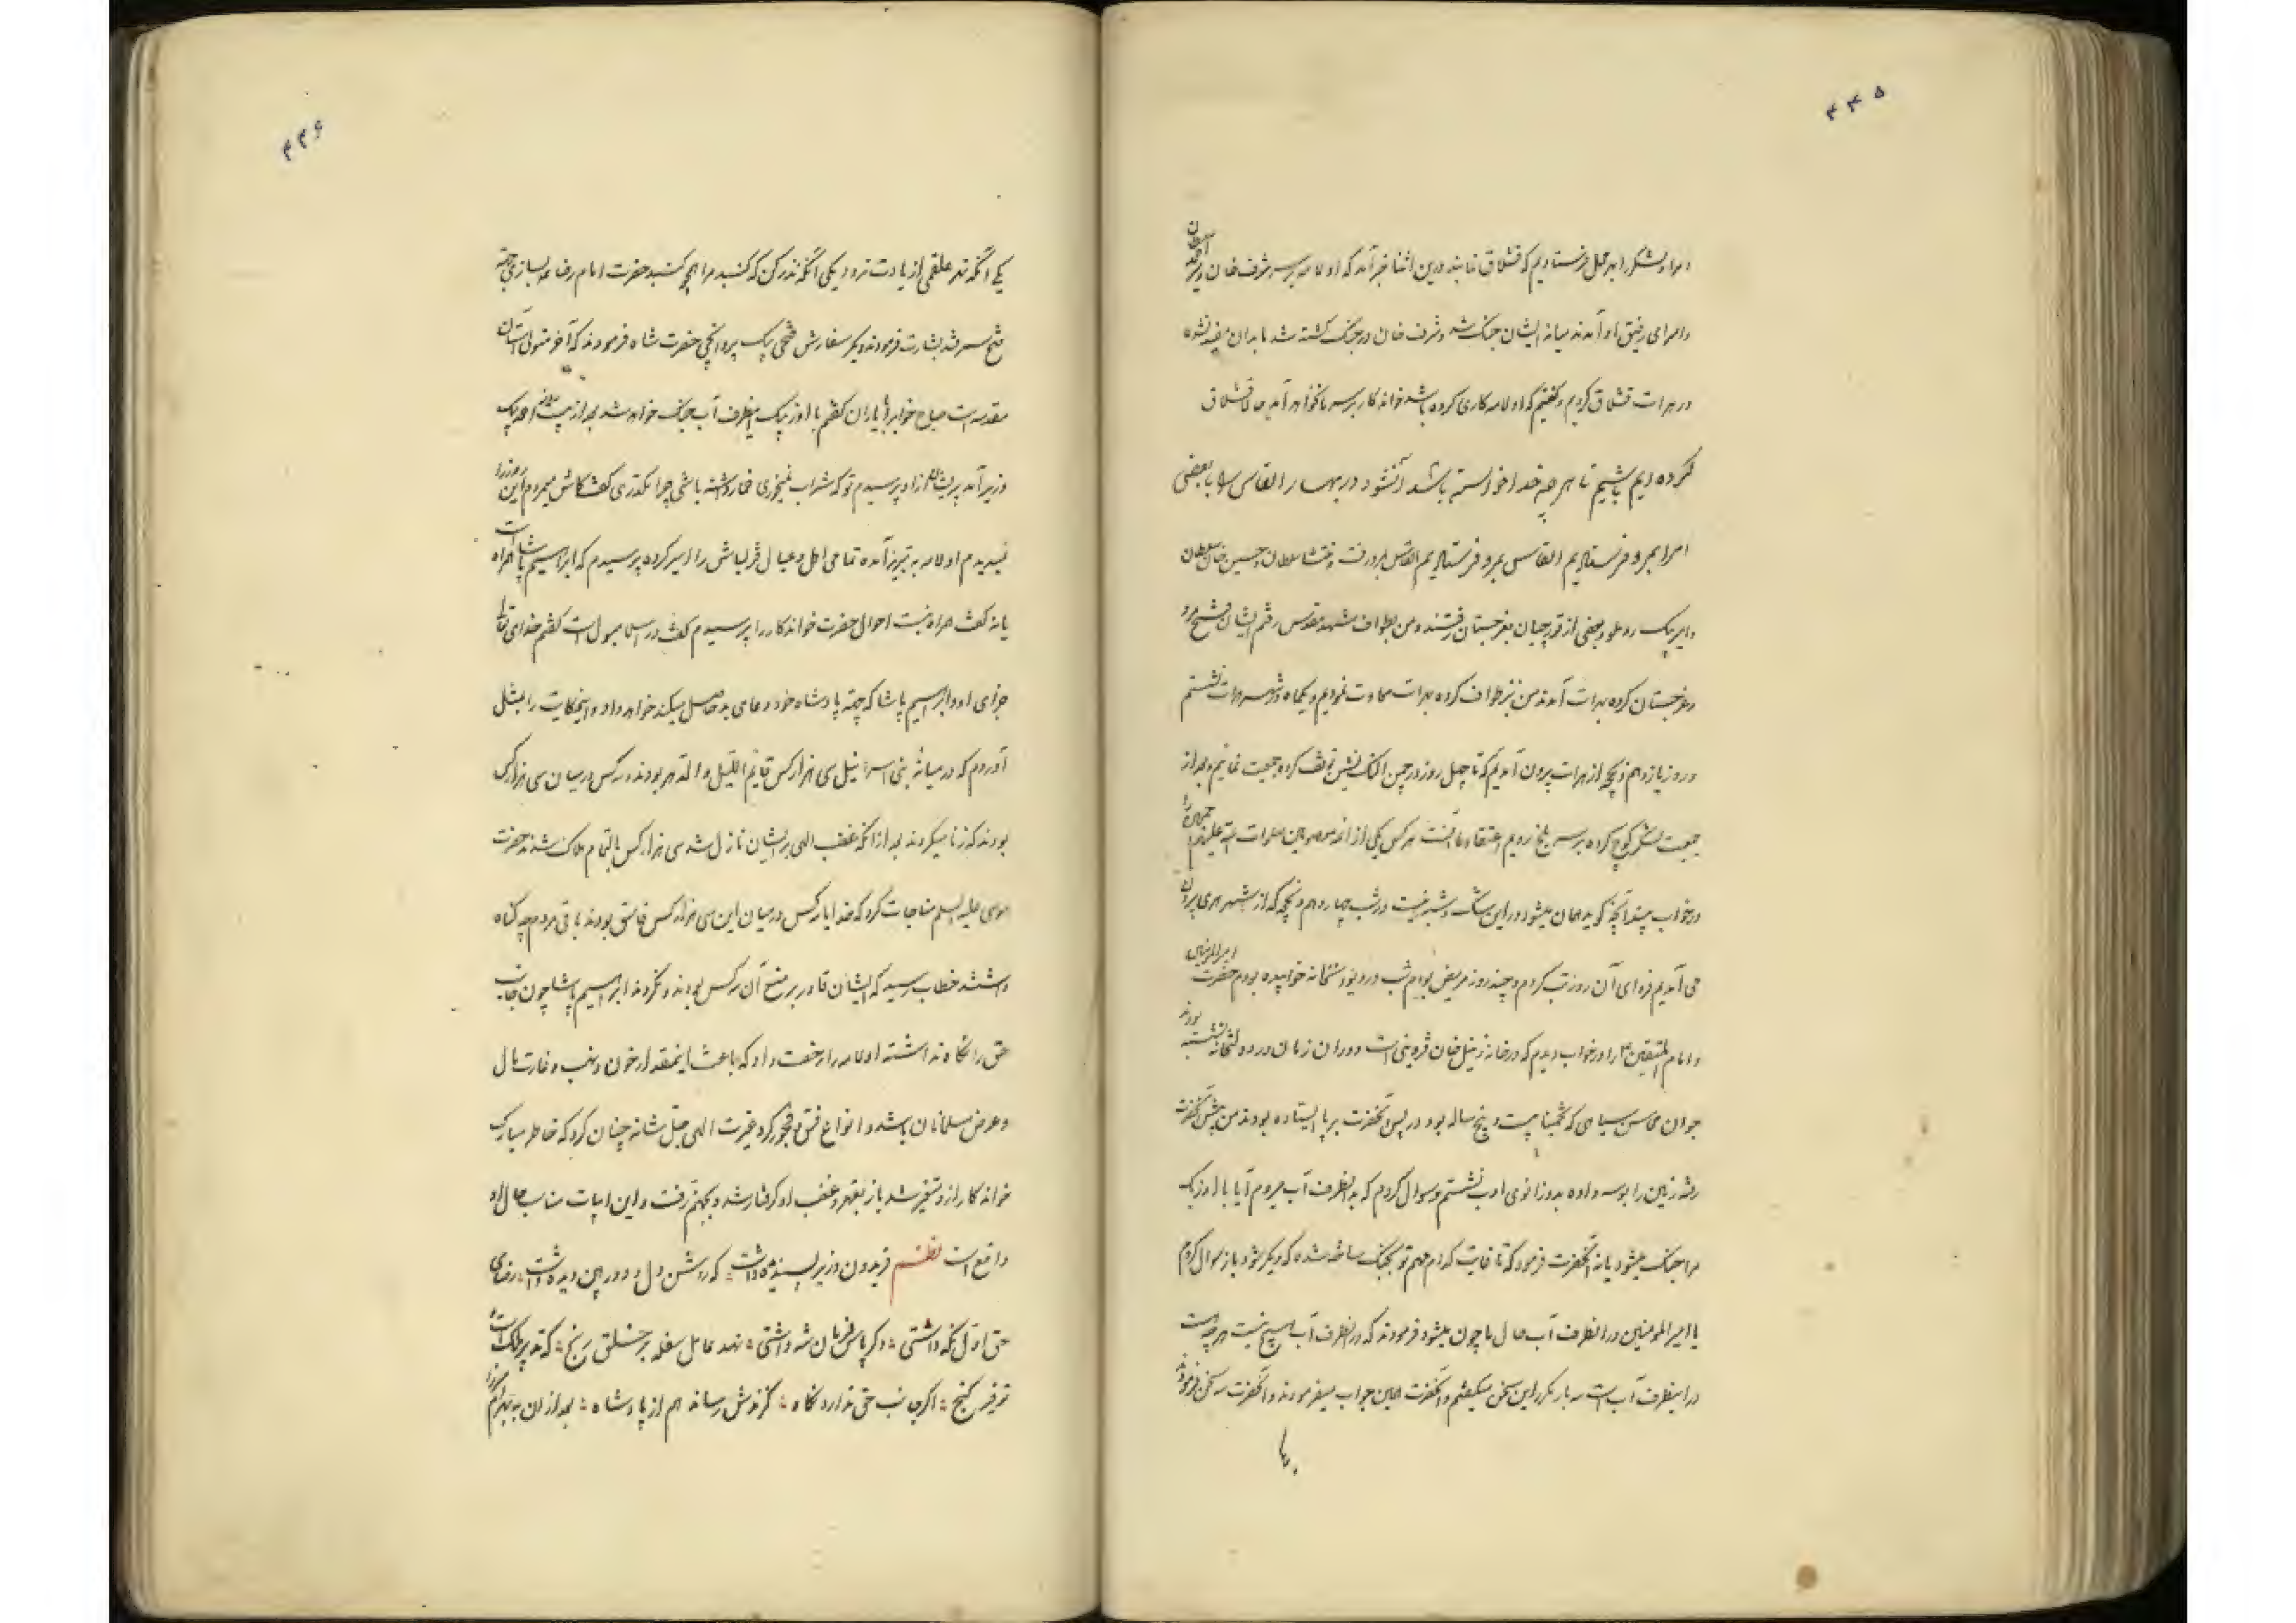 ۴۴۵
و امراء و لشکر را بهر محل فرستادیم که قشلاق نمایند درین اثنا خبر آمد که اولامه بر سر شرف خان و
و امرای رفیق او آمدند میانه ایشان جنگ شد و شرف خان در جنگ کشته شد ما بدان مقید نشده
در هرات قشلاق کردیم و گفتیم که اولامه کاری کرده باشد خواندکار بر سر ما نخواهد آمد حالا قشلاق
کرده ایم باشیم تا هر چه خدا خواسته باشد آنشود در بهار القاس را با بعضی
امرا بمرو فرستادیم القاس بمرو فرستادیم القاس بمرو رفت و منتشا سلطان و حسین خان سلطان
و امیر بیک روملو و بعضی از قورچیان بغرجستان رفتند و من بطواف مشهد مقدس رفتم ایشان فتح مرو
و غرجستان کرده بهرات آمدند من نیز طواف کرده بهرات معاودت نمودیم و یکماه در شهر هرات نشستم
و روز یازدهم ذیحجه از هرات بیرون آمدیم که تا چهل روز در چمن النک نشین توقف کرده جمعیت نمائیم و بعد از
جمعیت لشکر کوچ کرده بر سر بلخ رویم اعتقاد ما آنست هر کس یکی از ائمه معصومین صلوات الله علیهم
در خواب بیند آنچه گوید همان میشود و در این شک و شبه نیست در شب چهاردهم ذیحجه که از شهر هری بیرون
می آمدیم فردای آن روز تب کردم و چند روز مریض بودم شب در دیوانخانه خوابیده بودم حضرت امیرالمؤمنین
و امام المتقین را در خواب دیدم که در خانه زینل خان قزوینی است و در آن زمان در دولتخانه نشسته بودند
جوان محاسن سیاهی که تخمینا بیست و پنج ساله بود در پس آنحضرت بر پا ایستاده بودند من پیش آنحضرت
رفته زمین را بوسه داده بدو زانوی ادب نشستم و سوال کردم که به انطرف آب میروم آیا با اوزبک
مرا جنگ میشود یا نه آنحضرت فرمود که تا غایت کدام مهم تو بجنگ ساخته شده که دیگر شود باز سوال کردم
یا امیر المومنین در انطرف آب حال ما چون میشود فرمودند که در انطرف آب هیچ نیست هر چه هست
در اینطرف آب است سه بار مکرر این سخن میگفتم و آنحضرت همین جواب میفرمودند و آنحضرت سه سخن فرمودند
۴۴۶
یکی آنکه نذر علقمی از یادت نرود یکی آنکه نذر کن که گنبد مرا همچو گنبد حضرت امام رضا بسازی جهة
فتح سمرقند بشارت فرمودند دیگر سفارش فتحی بیک پروانچی حضرت شاه فرمودند که آخر متولی آستان
مقدسه است صباح خواب را بیاران گفتم با اوزبک اینطرف آب جنگ خواهد شد بعد از بیست روز احمد بیک
وزیر آمد پریشان از او پرسیدم تو که شراب نمیخوری خمار داشته باشی چرا مکدری گفت کاش میمردم این روز را
نمیدیدم اولامه به تبریز آمده تمامی اهل و عیال قزلباش را اسیر کرده پرسیدم که ابراهیم پاشا همراه است
یا نه گفت همراه نیست احوال حضرت خواندکار را پرسیدم گفت در اسلامبول است گفتم خدای تعالی
جزای او و ابراهیم پاشا که جهة پادشاه خود دعای بد حاصل میکند خواهد داد و اینحکایت را بمثل
آوردم که در میانه بنی اسرائیل سی هزار کس قایم اللیل و الدهر بودند سه کس در میان سی هزار کس
بودند که زنا میکردند بعد از آنکه غضب الهی بر ایشان نازل شد سی هزار کس بالتمام هلاک شدند حضرت
موسی علیه السلم مناجات کرد که خدایا سه کس در میان این سی هزار کس فاسق بودند باقی مردم چه گناه
داشتند خطاب رسید که ایشان قادر بر منع آن سه کس بودند و نکردند ابراهیم پاشا چون جانب
حق را نگاه نداشته اولامه را رخصت داد که باعث اینمقدار خون و نهب و غارت مال
و عرض مسلمانان باشد و انواع فسق و فجور کرد غیرت الهی جل شانه چنان کرد که خاطر مبارک
خواندکار از او متغیر شد باز بقهر و غضب او گرفتار شد و بجهنم رفت و این ابیات مناسب حال او
واقع است نظم فریدون وزیر پسندیده داشت که روشن دل و دوربین دیده داشت رضای
حق اول نگه داشتی دگر پاس فرمان شه داشتی نهد عامل سفله بر خلق رنج که تدبیر ملک است و
توفیر گنج اگر جانب حق ندارد نگاه گزندش رساند هم از پادشاه بعد از آن به بهرام